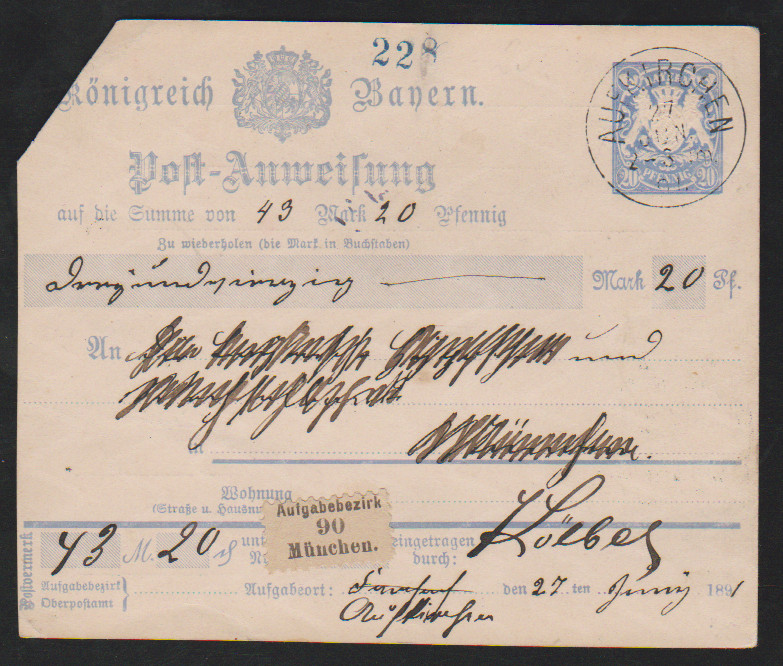 228
Königreich Bayern.
AUFKIRCHEN
27
JUN
2-3
PFENNIG
20 20
Post-Anweisung
auf die Summe von 43 Mark 20 Pfennig
Zu wiederholen (die Mark in Buchstaben)
dreyundvierzig Mark 20 Pf.
An und
in München.
Wohnung
(Straße u. Hausnu
Aufgabebezirk
90
München.
Postvermerk
43 M. 20 ₰ unt eingetragen
N durch:
Aufgabebezirk
Oberpostamt
Aufgabeort: den 27 ten Juny 1891
Aufkirchen